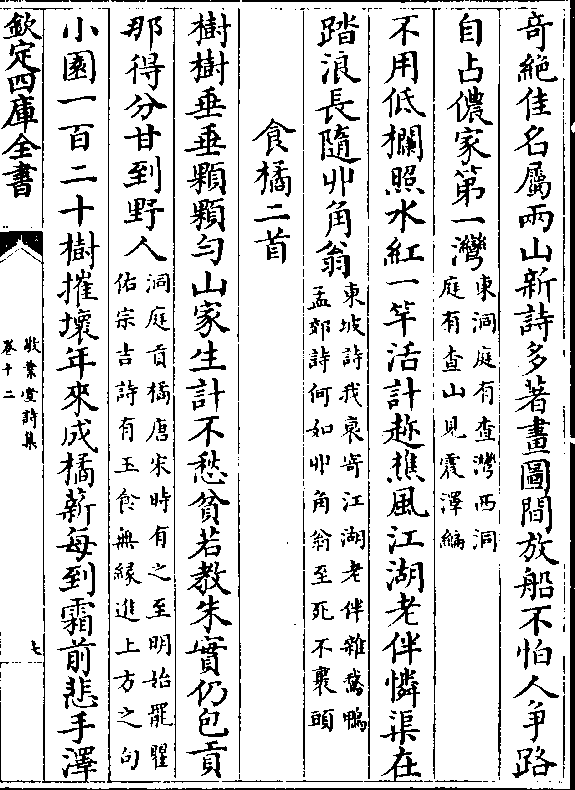 奇絶佳名屬兩山新詩多著畫圖間放船不怕人爭路
自占儂家第一灣東洞庭有查灣西洞
庭有查山見震澤編
不用低欄照水紅一竿活計趂樵風江湖老伴憐渠在
踏浪長隨丱角翁東坡詩我衰寄江湖老伴雜鵞鴨
孟郊詩何如丱角翁至死不裹頭
食橘二首
樹樹垂垂顆顆勻山家生計不愁貧若教朱實仍包貢
那得分甘到野人洞庭貢橘唐宋時有之至明始罷瞿
佑宗吉詩有玉食無縁進上方之句
小園一百二十樹摧壞年來成橘薪每到霜前悲手澤
欽定四庫全書
敬業堂詩集
卷十二
七